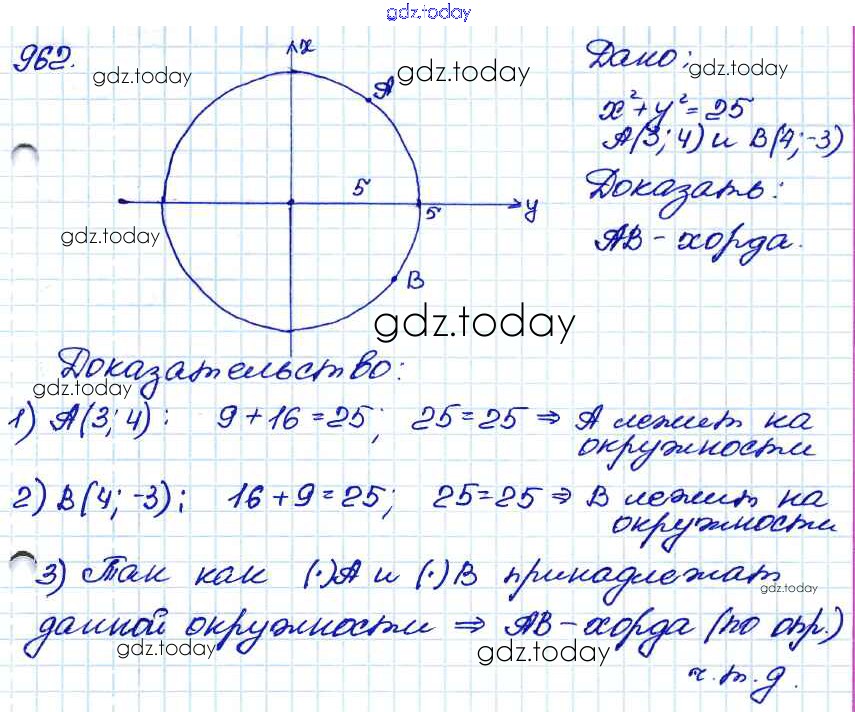 gdz.today
962.
gdz.today
x
A
gdz.today
Дано:
gdz.today
x²+y²=25
A(3; 4) и B(4; -3)
Доказать:
AB - хорда.
5
5
y
gdz.today
B
gdz.today
Доказательство:
gdz.today
1) A(3; 4): 9+16=25; 25=25 ⇒ A лежит на
окружности
2) B(4; -3); 16+9=25; 25=25 ⇒ B лежит на
окружности
3) Так как (·)A и (·)B принадлежат
gdz.today
данной окружности ⇒ AB-хорда (по опр.)
gdz.today
gdz.today
ч.т.д.